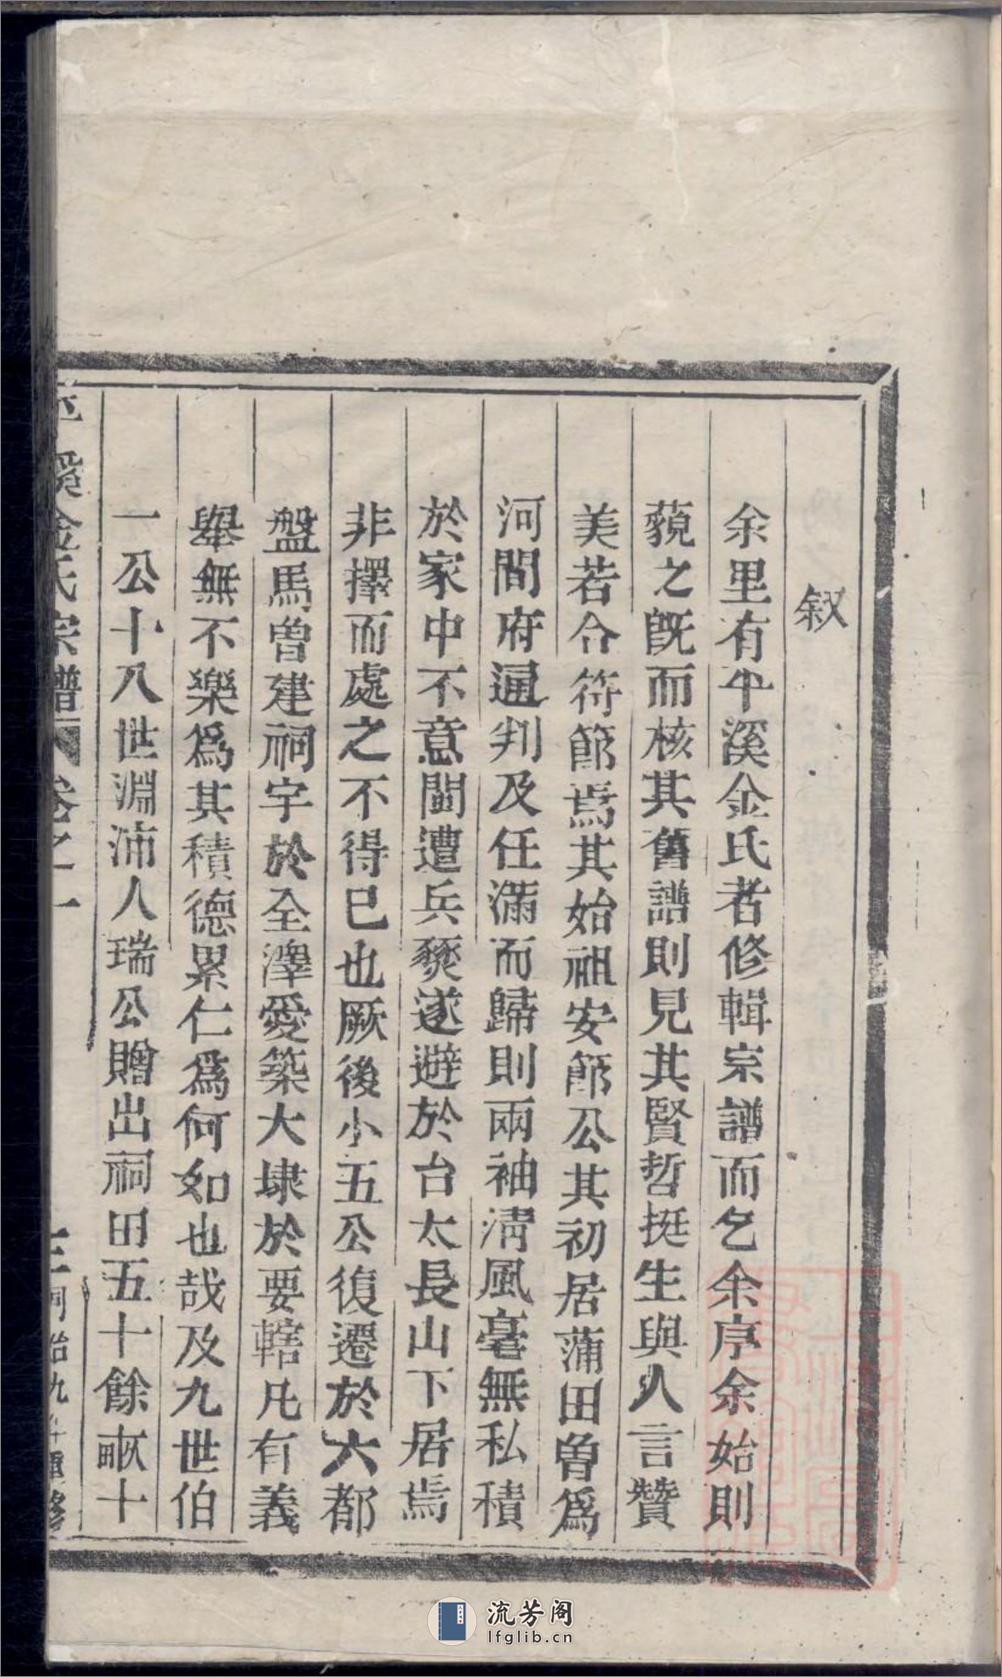 叙
余里有平溪金氏者修輯宗譜而乞余序余始則
藐之旣而核其舊譜則見其賢哲挺生與人言贊
美若合符節焉其始祖安節公其初居蒲田曾爲
河間府通判及任滿而歸則兩袖清風毫無私積
於家中不意閩遭兵燹遂避於台太長山下居焉
非擇而處之不得已也厥後小五公復遷於六都
盤馬曾建祠宇於全澤愛築大埭於要轄凡有義
舉無不樂爲其積德累仁爲何如也哉及九世伯
一公十八世淵沛人瑞公贈出祠田五十餘畝十
平溪金氏宗譜 卷之一 三 同治九年重修
流芳阁
lfglib.cn